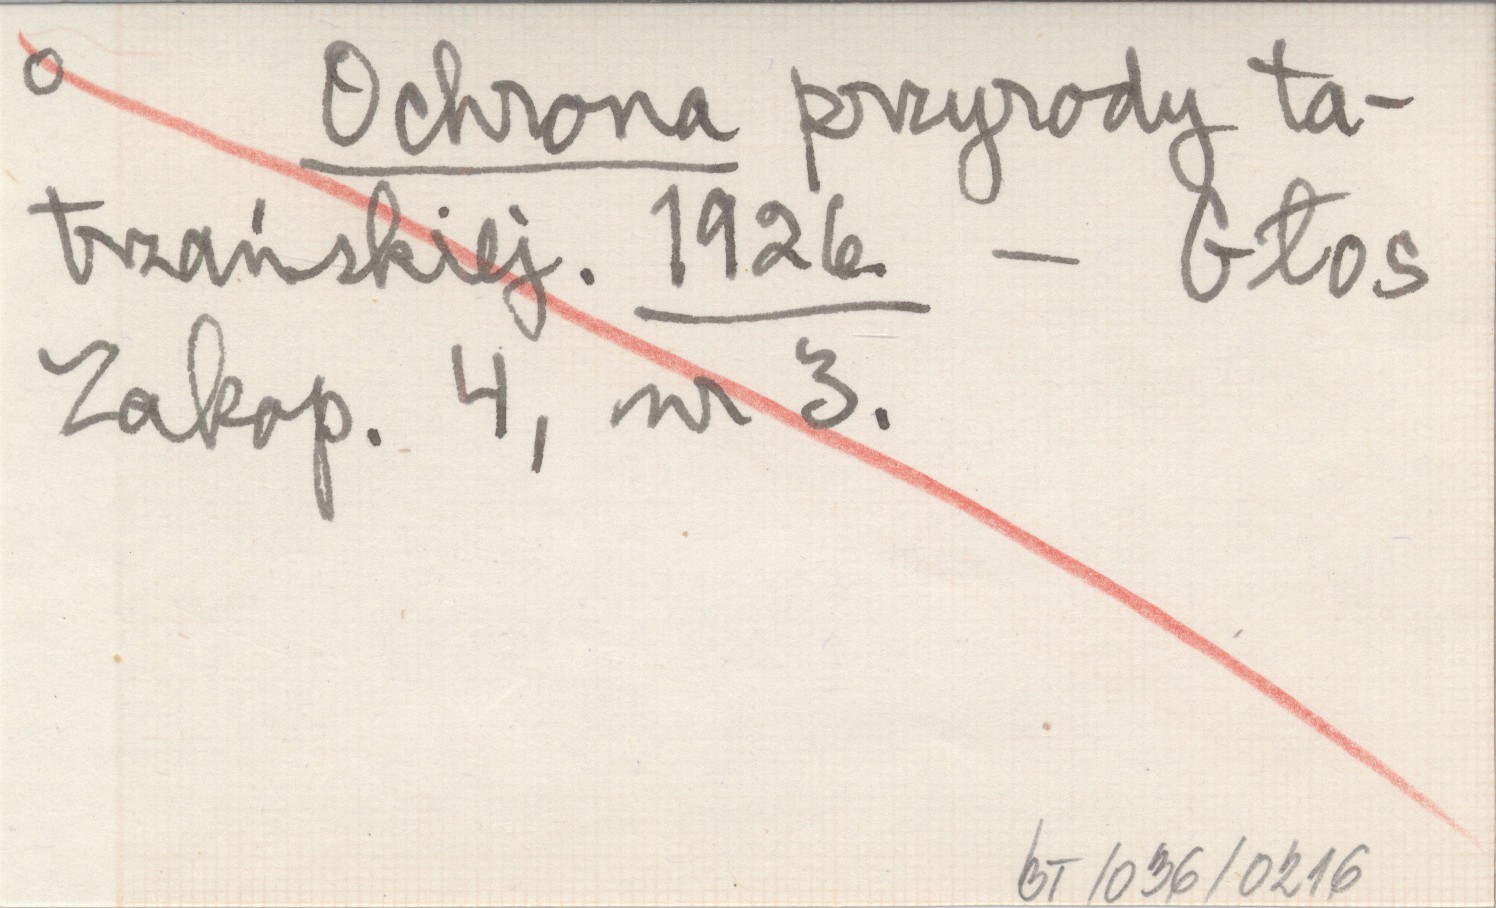 o Ochrona przyrody ta-
trzańskiej. 1926 — Głos
Zakop. 4, nr 3.
BT/036/0216